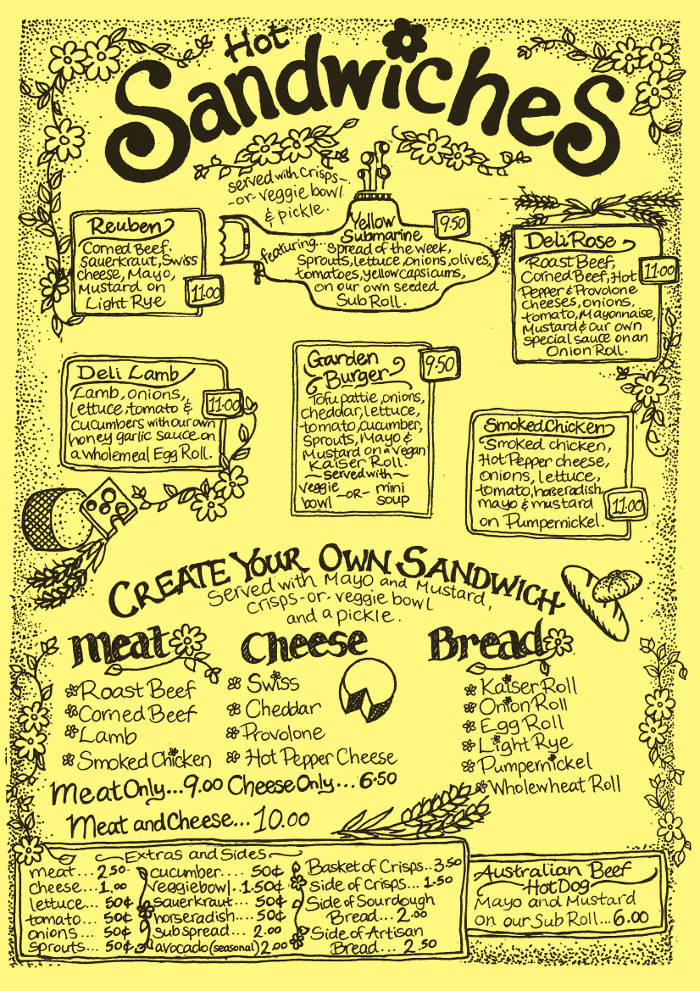 Hot
Sandwiches
served with crisps-
-or-veggie bowl
& pickle.
Reuben
Corned Beef,
Sauerkraut, Swiss
cheese, Mayo,
Mustard on
Light Rye
11.00
Yellow
Submarine
9.50
featuring...
spread of the week,
Sprouts, lettuce, onions, olives,
tomatoes, yellow capsicums,
on our own seeded
Sub Roll.
Deli Rose
Roast Beef,
Corned Beef, Hot
Pepper & Provolone
cheeses, onions,
tomato, Mayonnaise,
Mustard & our own
special sauce on an
Onion Roll.
11.00
Deli Lamb
Lamb, onions,
lettuce, tomato &
cucumbers with our own
honey garlic sauce on
a wholemeal Egg Roll.
11.00
Garden
Burger
9.50
Tofu pattie, onions,
cheddar, lettuce,
tomato, cucumber,
Sprouts, Mayo &
Mustard on a vegan
Kaiser Roll.
~served with~
veggie bowl -OR- mini soup
Smoked Chicken
Smoked chicken,
Hot Pepper cheese,
onions, lettuce,
tomato, horseradish,
mayo & mustard
on Pumpernickel.
11.00
Create Your Own Sandwich
Served with Mayo and Mustard,
Crisps-or-veggie bowl
and a pickle.
Meat
Roast Beef
Corned Beef
Lamb
Smoked Chicken
Cheese
Swiss
Cheddar
Provolone
Hot Pepper Cheese
Bread
Kaiser Roll
Onion Roll
Egg Roll
Light Rye
Pumpernickel
Wholewheat Roll
Meat Only...9.00 Cheese Only...6.50
Meat and Cheese...10.00
Extras and Sides
meat...2.50
cheese...1.00
lettuce...50¢
tomato...50¢
onions...50¢
sprouts...50¢
cucumber....50¢
veggie bowl.1.50¢
sauerkraut...50¢
horseradish...50¢
sub spread...2.00
avocado (seasonal) 2.00
Basket of Crisps..3.50
Side of Crisps...1.50
Side of Sourdough
Bread...2.00
Side of Artisan
Bread...2.50
Australian Beef
Hot Dog
Mayo and Mustard
on our Sub Roll...6.00